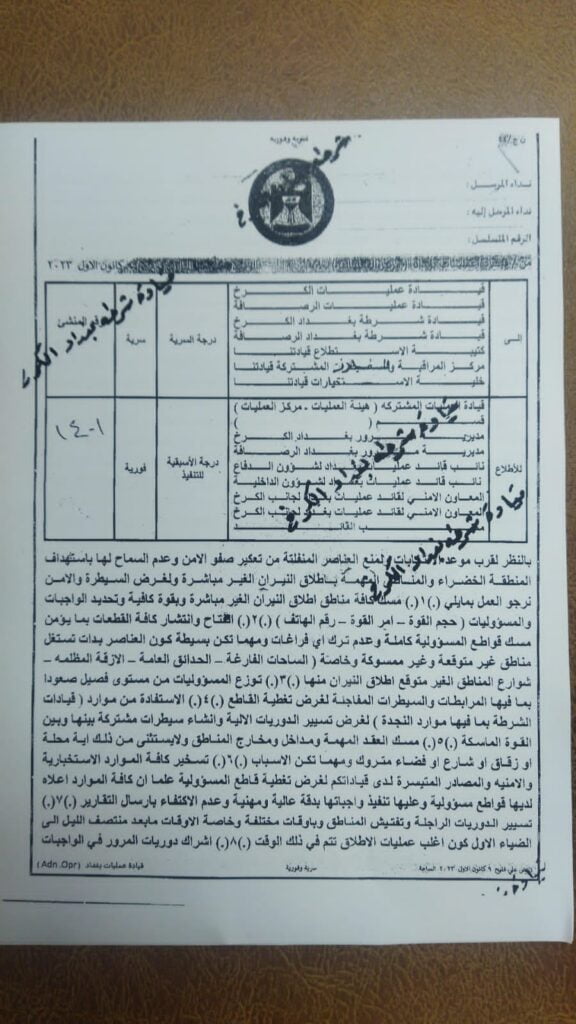 سرية وفورية
نداء المرسل :
نداء المرسل اليه :
الرقم المتسلسل :
كانون الاول ٢٠٢٣
الى
قيادة عمليات الكرخ
قيادة عمليات الرصافة
قيادة شرطة بغداد الكرخ
قيادة شرطة بغداد الرصافة
كتيبة الاستطلاع قيادتنا
مركز المراقبة المشتركة قيادتنا
خلية الاستخبارات قيادتنا
درجة السرية
سرية
المنشئ
للاطلاع
قيادة العمليات المشتركه ( هيئة العمليات - مركز العمليات )
قسم ( )
مديرية مرور بغداد الكرخ
مديرية مرور بغداد الرصافة
نائب قائد عمليات بغداد لشؤون الدفاع
نائب قائد عمليات بغداد لشؤون الداخلية
المعاون الامني لقائد عمليات بغداد لجانب الكرخ
المعاون الامني لقائد عمليات بغداد لجانب الكرخ
مكتب القائد
درجة الأسبقية للتنفيذ
فورية
١٤٠١
قيادة شرطة بغداد الكرخ
قيادة شرطة بغداد الكرخ
قيادة شرطة بغداد الكرخ
بالنظر لقرب موعد ولمنع العناصر المنفلتة من تعكير صفو الامن وعدم السماح لها باستهداف
المنطقة الخضراء والمناطق المهمة باطلاق النيران الغير مباشرة ولغرض السيطرة والامن
نرجو العمل بمايلي (.)١(.) مسك كافة مناطق اطلاق النيران الغير مباشرة وبقوة كافية وتحديد الواجبات
والمسؤوليات ( حجم القوة – امر القوة – رقم الهاتف ) (.)٢(.) انفتاح وانتشار كافة القطعات بما يؤمن
مسك قواطع المسؤولية كاملة وعدم ترك اي فراغات ومهما تكن بسيطة كون العناصر بدات تستغل
مناطق غير متوقعة وغير ممسوكة وخاصة ( الساحات الفارغة – الحدائق العامة – الازقة المظلمه –
شوارع المناطق الغير متوقع اطلاق النيران منها (.)٣(.) توزع المسؤوليات من مستوى فصيل صعودا
بما فيها المرابطات والسيطرات المفاجئة لغرض تغطية القاطع (.)٤(.) الاستفادة من موارد ( قيادات
الشرطة بما فيها موارد النجدة ) لغرض تسيير الدوريات الالية وانشاء سيطرات مشتركة بينها وبين
القوة الماسكة (.)٥(.) مسك العقد المهمة ومداخل ومخارج المناطق ولايستثنى من ذلك اية محلة
او زقاق او شارع او فضاء متروك ومهما تكن الاسباب (.)٦(.) تسخير كافة الموارد الاستخبارية
والامنيه والمصادر المتيسرة لدى قياداتكم لغرض تغطية قاطع المسؤولية علما ان كافة الموارد اعلاه
لديها قواطع مسؤولية وعليها تنفيذ واجباتها بدقة عالية ومهنية وعدم الاكتفاء بارسال التقارير (.)٧(.)
تسيير الدوريات الراجلة وتفتيش المناطق وباوقات مختلفة وخاصة الاوقات مابعد منتصف الليل الى
الضياء الاول كون اغلب عمليات الاطلاق تتم في ذلك الوقت (.)٨(.) اشراك دوريات المرور في الواجبات
٩ كانون الاول ٢٠٢٣ الساعة
سرية وفورية
قيادة عمليات بغداد (Adn .Opr)